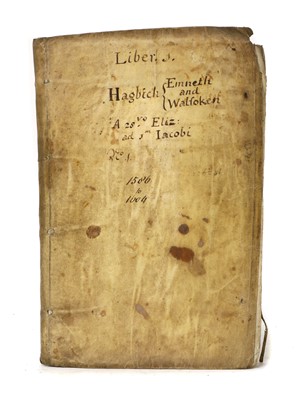 Liber, 3.
Hagbich { Emneth
and
Walsoken
A 28vo Eliz:
ad 5m Iacobi
No. 1
1586
to
1609